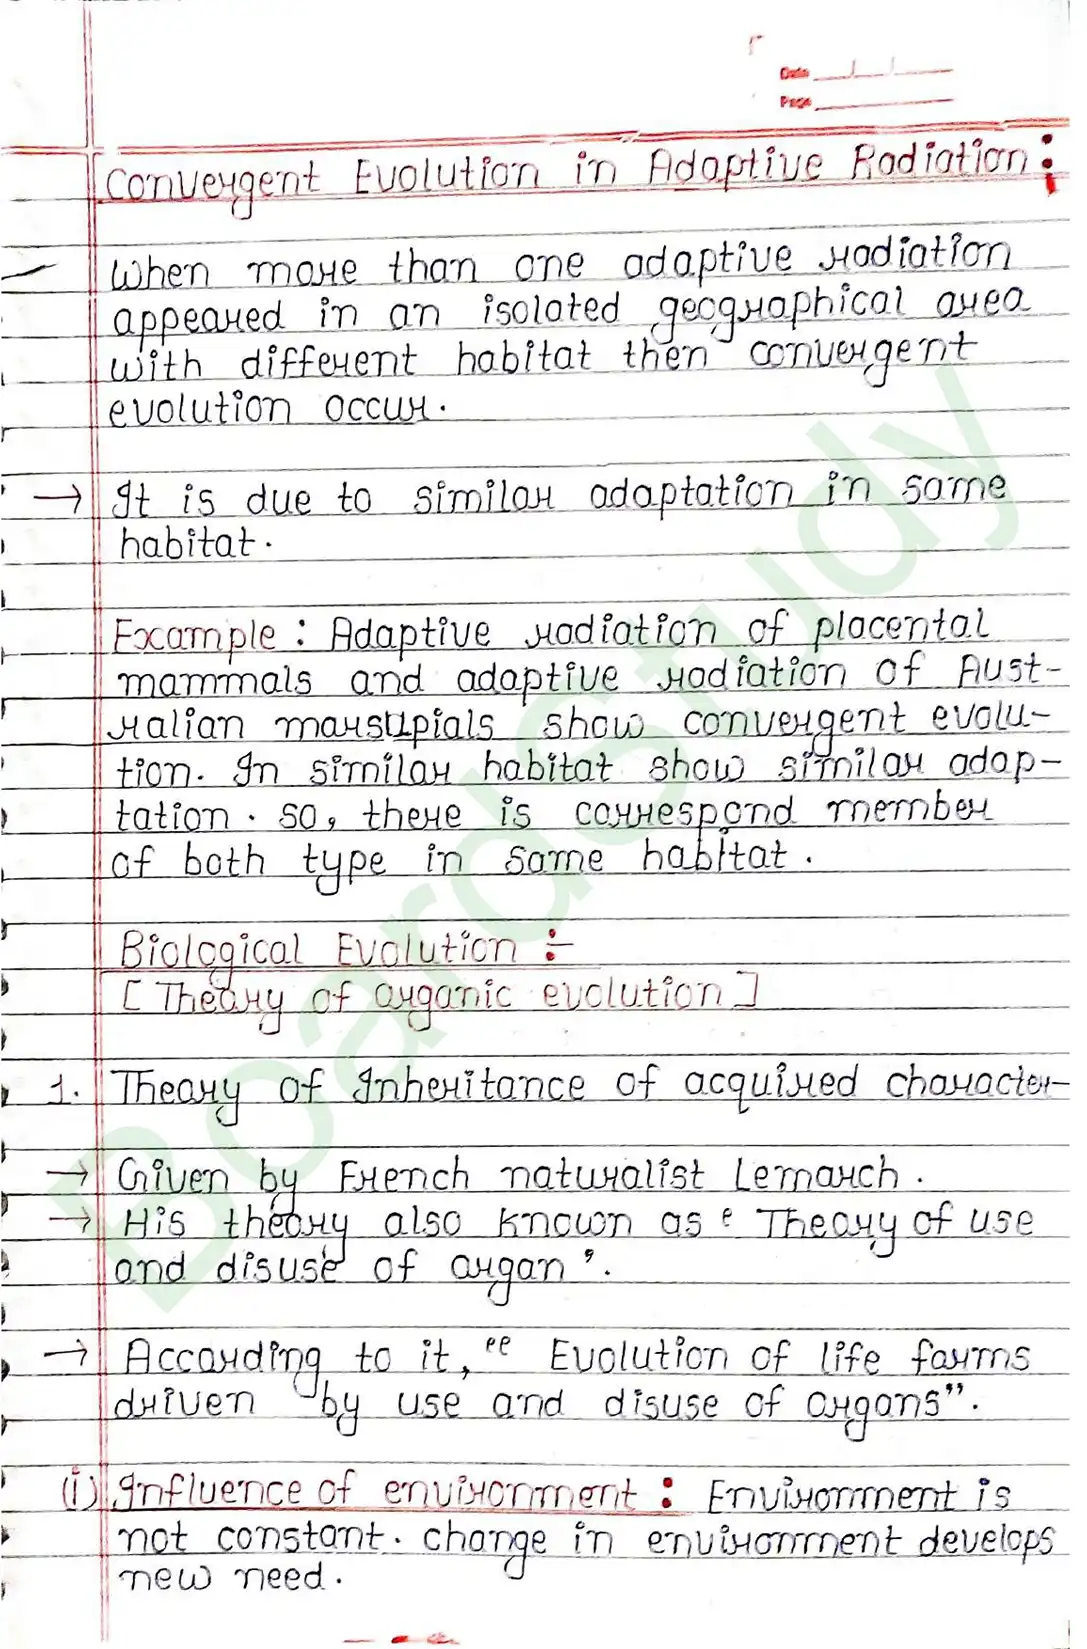 Date
Page
Convergent Evolution in Adaptive Radiation:
When more than one adaptive radiation
appeared in an isolated geographical area
with different habitat then convergent
evolution occur.
→ It is due to similar adaptation in same
habitat.
Example : Adaptive radiation of placental
mammals and adaptive radiation of Aust-
ralian marsupials show convergent evolu-
tion. In similar habitat show similar adap-
tation. so, there is correspond member
of both type in same habitat.
Biological Evolution :-
[Theory of organic evolution]
1. Theory of Inheritance of acquired character-
→ Given by French naturalist Lemarch.
→ His theory also known as ‘Theory of use
and disuse of organ’.
→ According to it, “Evolution of life forms
driven by use and disuse of organs”.
(i) Influence of environment : Environment is
not constant. change in environment develops
new need.
BoardStudy